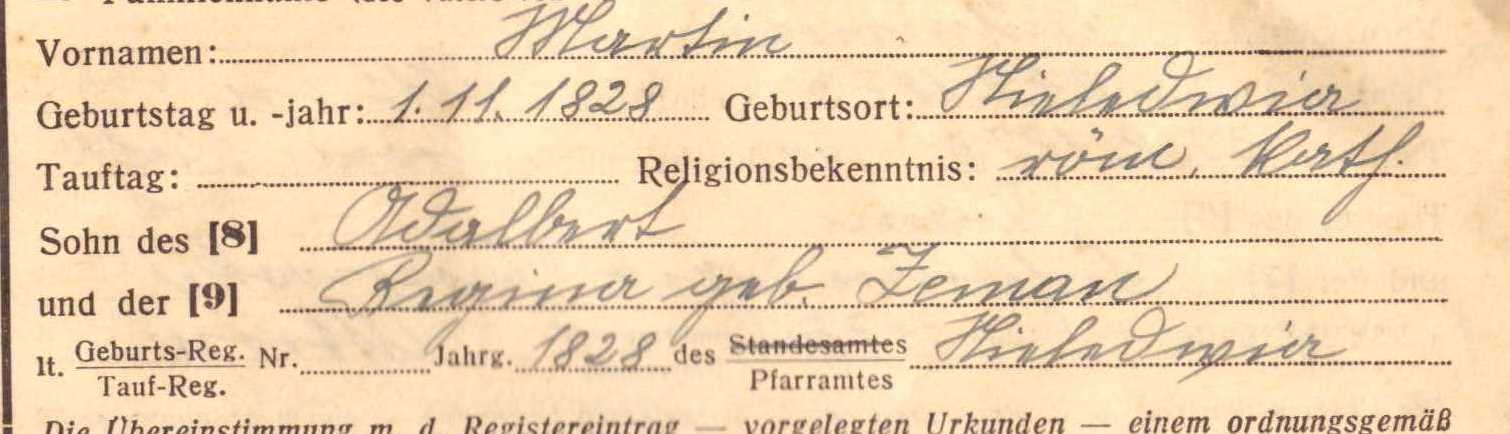 Vornamen: Martin
Geburtstag u. -jahr: 1. 11. 1828 Geburtsort:
Tauftag: Religionsbekenntnis: röm. kath.
Sohn des [8] Adalbert
und der [9] Regina geb. Zeman
lt. Geburts-Reg. Nr. Jahrg. 1828 des Standesamtes
Tauf-Reg. Pfarramtes
Die Übereinstimmung m. d. Registereintrag — vorgelegten Urkunden — einem ordnungsgemäß